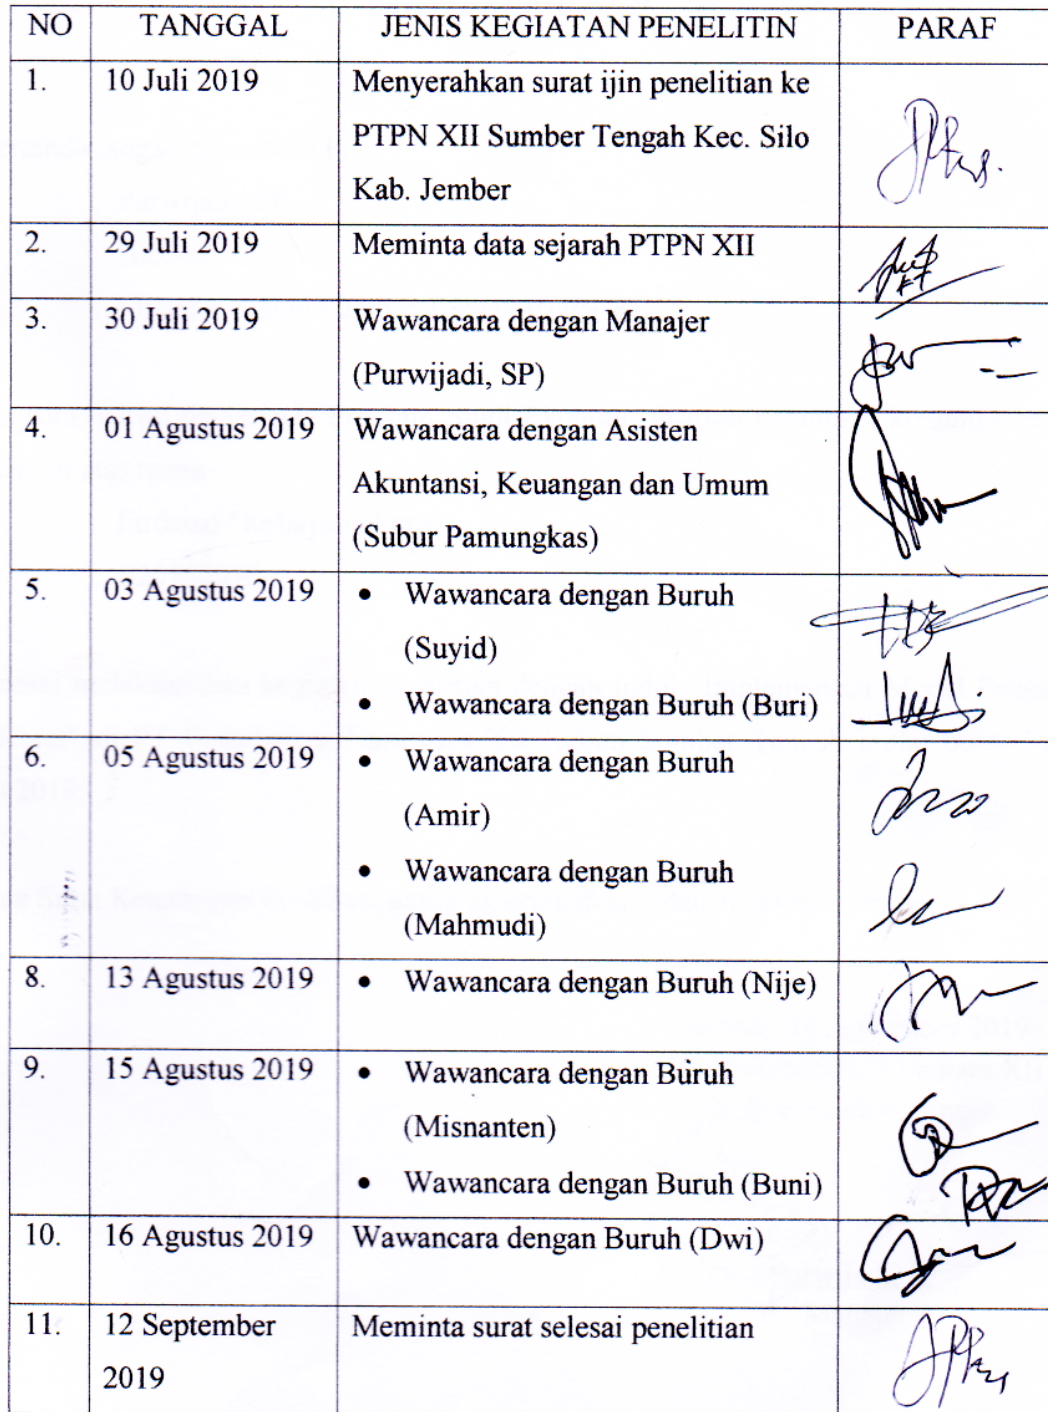 NO TANGGAL JENIS KEGIATAN PENELITIN PARAF
1. 10 Juli 2019 Menyerahkan surat ijin penelitian ke
PTPN XII Sumber Tengah Kec. Silo
Kab. Jember
2. 29 Juli 2019 Meminta data sejarah PTPN XII
3. 30 Juli 2019 Wawancara dengan Manajer
(Purwijadi, SP)
4. 01 Agustus 2019 Wawancara dengan Asisten
Akuntansi, Keuangan dan Umum
(Subur Pamungkas)
5. 03 Agustus 2019 • Wawancara dengan Buruh
(Suyid)
• Wawancara dengan Buruh (Buri)
6. 05 Agustus 2019 • Wawancara dengan Buruh
(Amir)
• Wawancara dengan Buruh
(Mahmudi)
8. 13 Agustus 2019 • Wawancara dengan Buruh (Nije)
9. 15 Agustus 2019 • Wawancara dengan Buruh
(Misnanten)
• Wawancara dengan Buruh (Buni)
10. 16 Agustus 2019 Wawancara dengan Buruh (Dwi)
11. 12 September Meminta surat selesai penelitian
2019